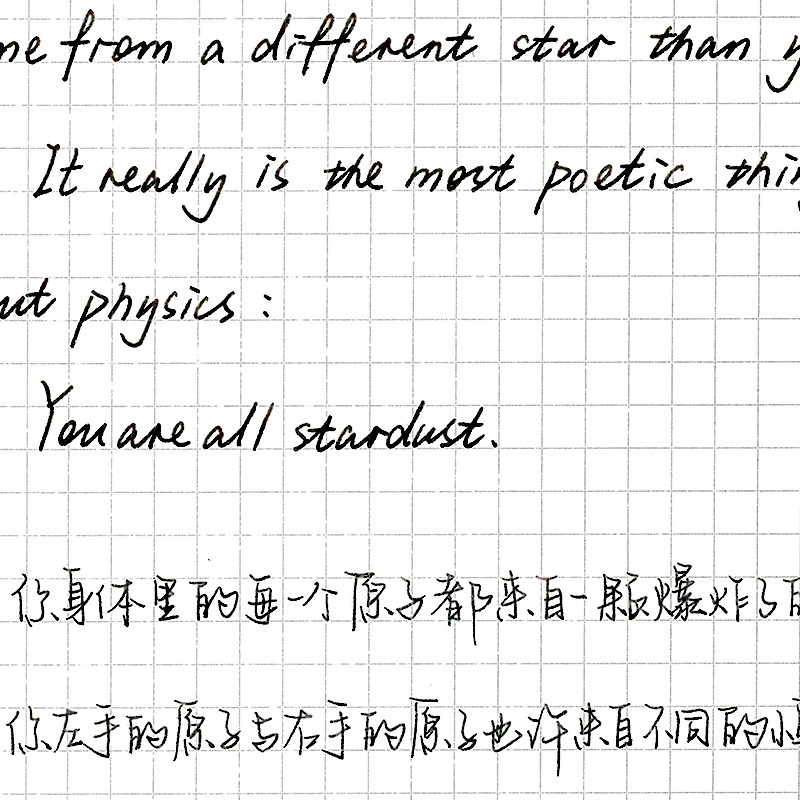 me from a different star than y
It really is the most poetic thin
ut physics:
You are all stardust.
你身体里的每一个原子都来自一颗爆炸了的
你左手的原子与右手的原子也许来自不同的